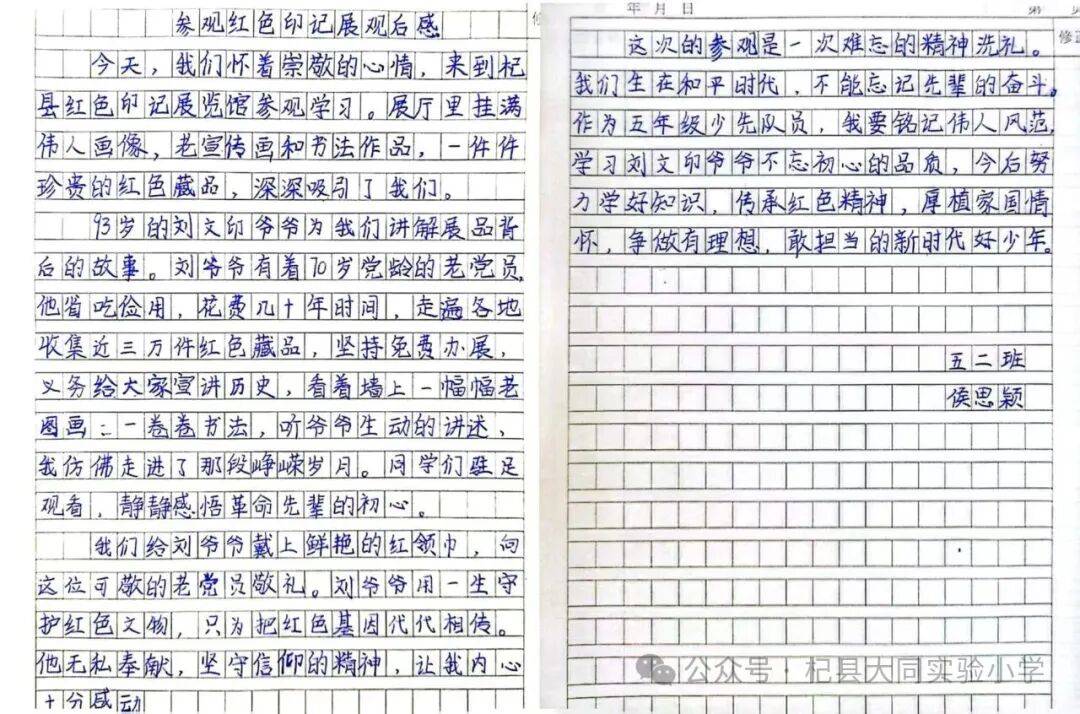 参观红色印记展观后感
今天，我们怀着崇敬的心情，来到杞
县红色印记展览馆参观学习。展厅里挂满
伟人画像，老宣传画和书法作品，一件件
珍贵的红色藏品，深深吸引了我们。
93岁的刘文印爷爷为我们讲解展品背
后的故事。刘爷爷有着70岁党龄的老党员，
他省吃俭用，花费几十年时间，走遍各地
收集近三万件红色藏品，坚持免费办展，
义务给大家宣讲历史，看着墙上一幅幅老
图画：一卷卷书法，听爷爷生动的讲述，
我仿佛走进了那段峥嵘岁月。同学们驻足
观看，静静感悟革命先辈的初心。
我们给刘爷爷戴上鲜艳的红领巾，向
这位可敬的老党员敬礼。刘爷爷用一生守
护红色文物，只为把红色基因代代相传。
他无私奉献，坚守信仰的精神，让我内心
十分感动
年 月 日
第
修正
这次的参观是一次难忘的精神洗礼。
我们生在和平时代，不能忘记先辈的奋斗。
作为五年级少先队员，我要铭记伟人风范，
学习刘文印爷爷不忘初心的品质，今后努
力学好知识，传承红色精神，厚植家国情
怀，争做有理想，敢担当的新时代好少年。
五二班
侯思颖
公众号·杞县大同实验小学